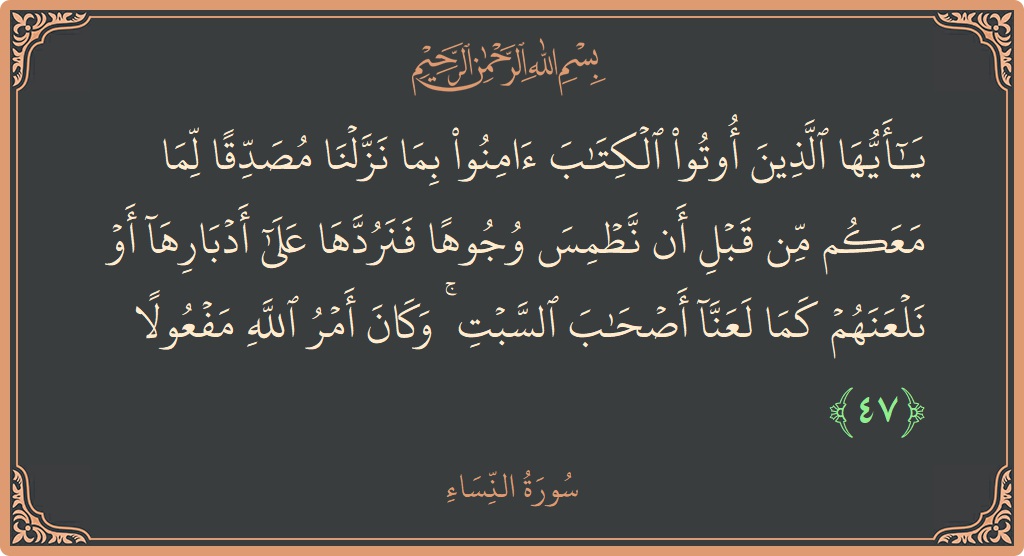 بِسْمِ اللَّهِ الرَّحْمَٰنِ الرَّحِيمِ
يَـٰٓأَيُّهَا ٱلَّذِينَ أُوتُوا۟ ٱلْكِتَـٰبَ ءَامِنُوا۟ بِمَا نَزَّلْنَا مُصَدِّقًا لِّمَا
مَعَكُم مِّن قَبْلِ أَن نَّطْمِسَ وُجُوهًا فَنَرُدَّهَا عَلَىٰٓ أَدْبَارِهَآ أَوْ
نَلْعَنَهُمْ كَمَا لَعَنَّآ أَصْحَـٰبَ ٱلسَّبْتِ ۚ وَكَانَ أَمْرُ ٱللَّهِ مَفْعُولًا
﴿٤٧﴾
سُورَةُ النِّسَاءِ